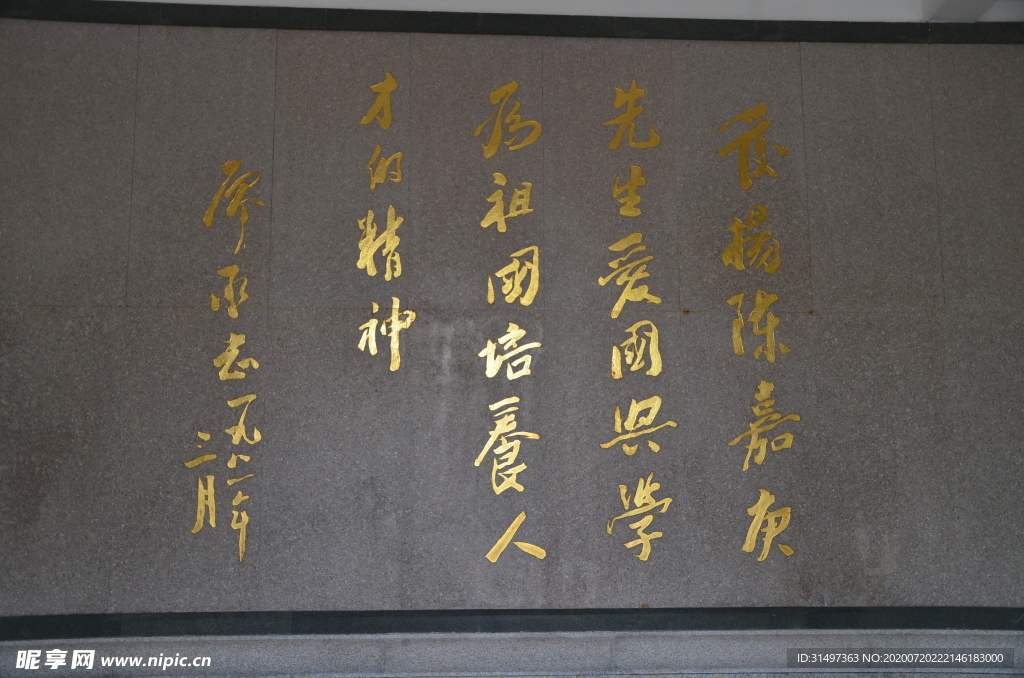 發揚陳嘉庚
先生愛國興學
為祖國培養人
才的精神
廖承志一九八一年
三月
昵享网 www.nipic.cn
ID:31497363 NO:20200720222146183000